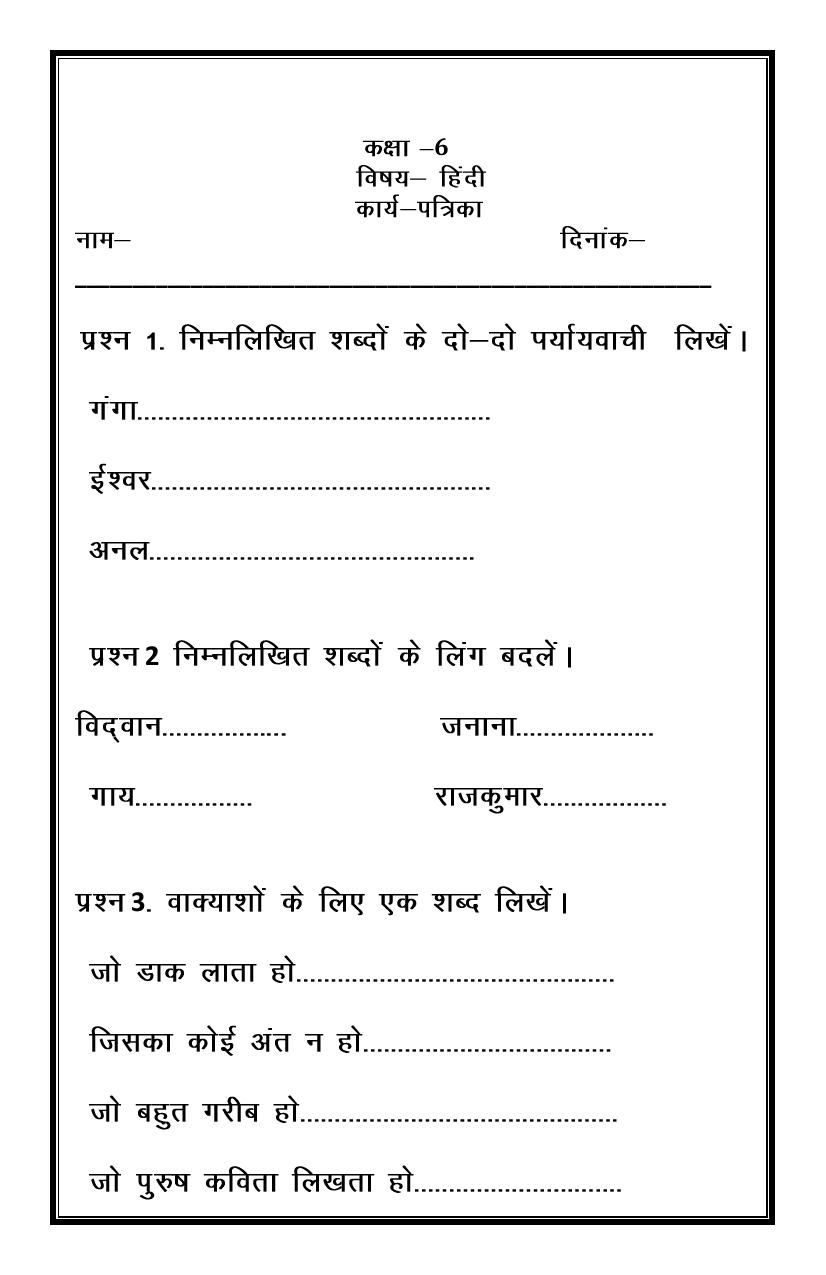 कक्षा –6
विषय– हिंदी
कार्य–पत्रिका
नाम– दिनांक–
प्रश्न 1. निम्नलिखित शब्दों के दो–दो पर्यायवाची लिखें।
गंगा....................................................
ईश्वर..................................................
अनल................................................
प्रश्न 2 निम्नलिखित शब्दों के लिंग बदलें।
विद्‌वान.................. जनाना....................
गाय................. राजकुमार..................
प्रश्न 3. वाक्याशों के लिए एक शब्द लिखें।
जो डाक लाता हो...............................................
जिसका कोई अंत न हो....................................
जो बहुत गरीब हो...............................................
जो पुरुष कविता लिखता हो..............................